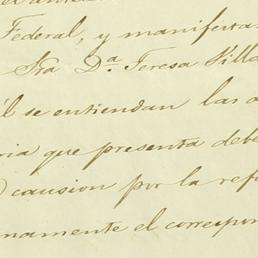 Federal, y manifesta
Sra D.a Teresa Villa
él se entiendan las
ria que presenta debe
causion por la ref
namente el correspon